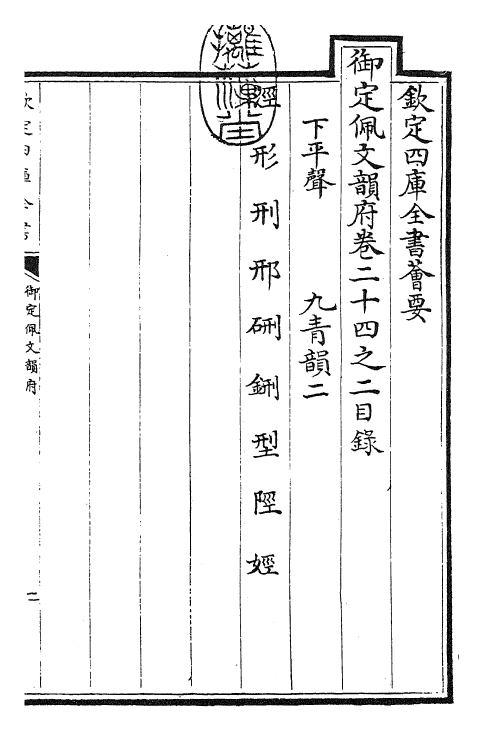 欽定四庫全書薈要
御定佩文韻府卷二十四之二目錄
下平聲　九青韻二
經形刑邢硎鉶型陘娙
御定佩文韻府